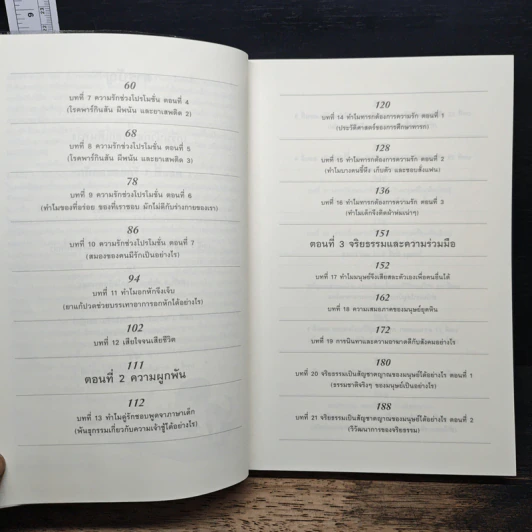 60
บทที่ 7 ความรักช่วงโปรโมชั่น ตอนที่ 4
(โรคพาร์กินสัน ผีพนัน และยาเสพติด 2)
68
บทที่ 8 ความรักช่วงโปรโมชั่น ตอนที่ 5
(โรคพาร์กินสัน ผีพนัน และยาเสพติด 3)
78
บทที่ 9 ความรักช่วงโปรโมชั่น ตอนที่ 6
(ทำไมของที่อร่อย ของที่เราชอบ มักไม่ดีกับร่างกายของเรา)
86
บทที่ 10 ความรักช่วงโปรโมชั่น ตอนที่ 7
(สมองของคนมีรักเป็นอย่างไร)
94
บทที่ 11 ทำไมอกหักจึงเจ็บ
(ยาแก้ปวดช่วยบรรเทาอาการอกหักได้อย่างไร)
102
บทที่ 12 เสียใจจนเสียชีวิต
111
ตอนที่ 2 ความผูกพัน
112
บทที่ 13 ทำไมคู่รักชอบพูดจาภาษาเด็ก
(พันธุกรรมเกี่ยวกับความเจ้าชู้ได้อย่างไร)
120
บทที่ 14 ทำไมทารกต้องการความรัก ตอนที่ 1
(ประวัติศาสตร์ของการศึกษาทารก)
128
บทที่ 15 ทำไมทารกต้องการความรัก ตอนที่ 2
(ทำไมบางคนขี้หึง เก็บตัว และชอบสั่งแฟน)
136
บทที่ 16 ทำไมทารกต้องการความรัก ตอนที่ 3
(ทำไมเด็กจึงติดผ้าห่มเน่าๆ)
151
ตอนที่ 3 จริยธรรมและความร่วมมือ
152
บทที่ 17 ทำไมมนุษย์จึงเสียสละตัวเองเพื่อคนอื่นได้
162
บทที่ 18 ความเสมอภาคของมนุษย์ยุคหิน
172
บทที่ 19 การนินทาและความอาฆาตดีกับสังคมอย่างไร
180
บทที่ 20 จริยธรรมเป็นสัญชาตญาณของมนุษย์ได้อย่างไร ตอนที่ 1
(ธรรมชาติจริงๆ ของมนุษย์เป็นอย่างไร)
188
บทที่ 21 จริยธรรมเป็นสัญชาตญาณของมนุษย์ได้อย่างไร ตอนที่ 2
(วิวัฒนาการของจริยธรรม)